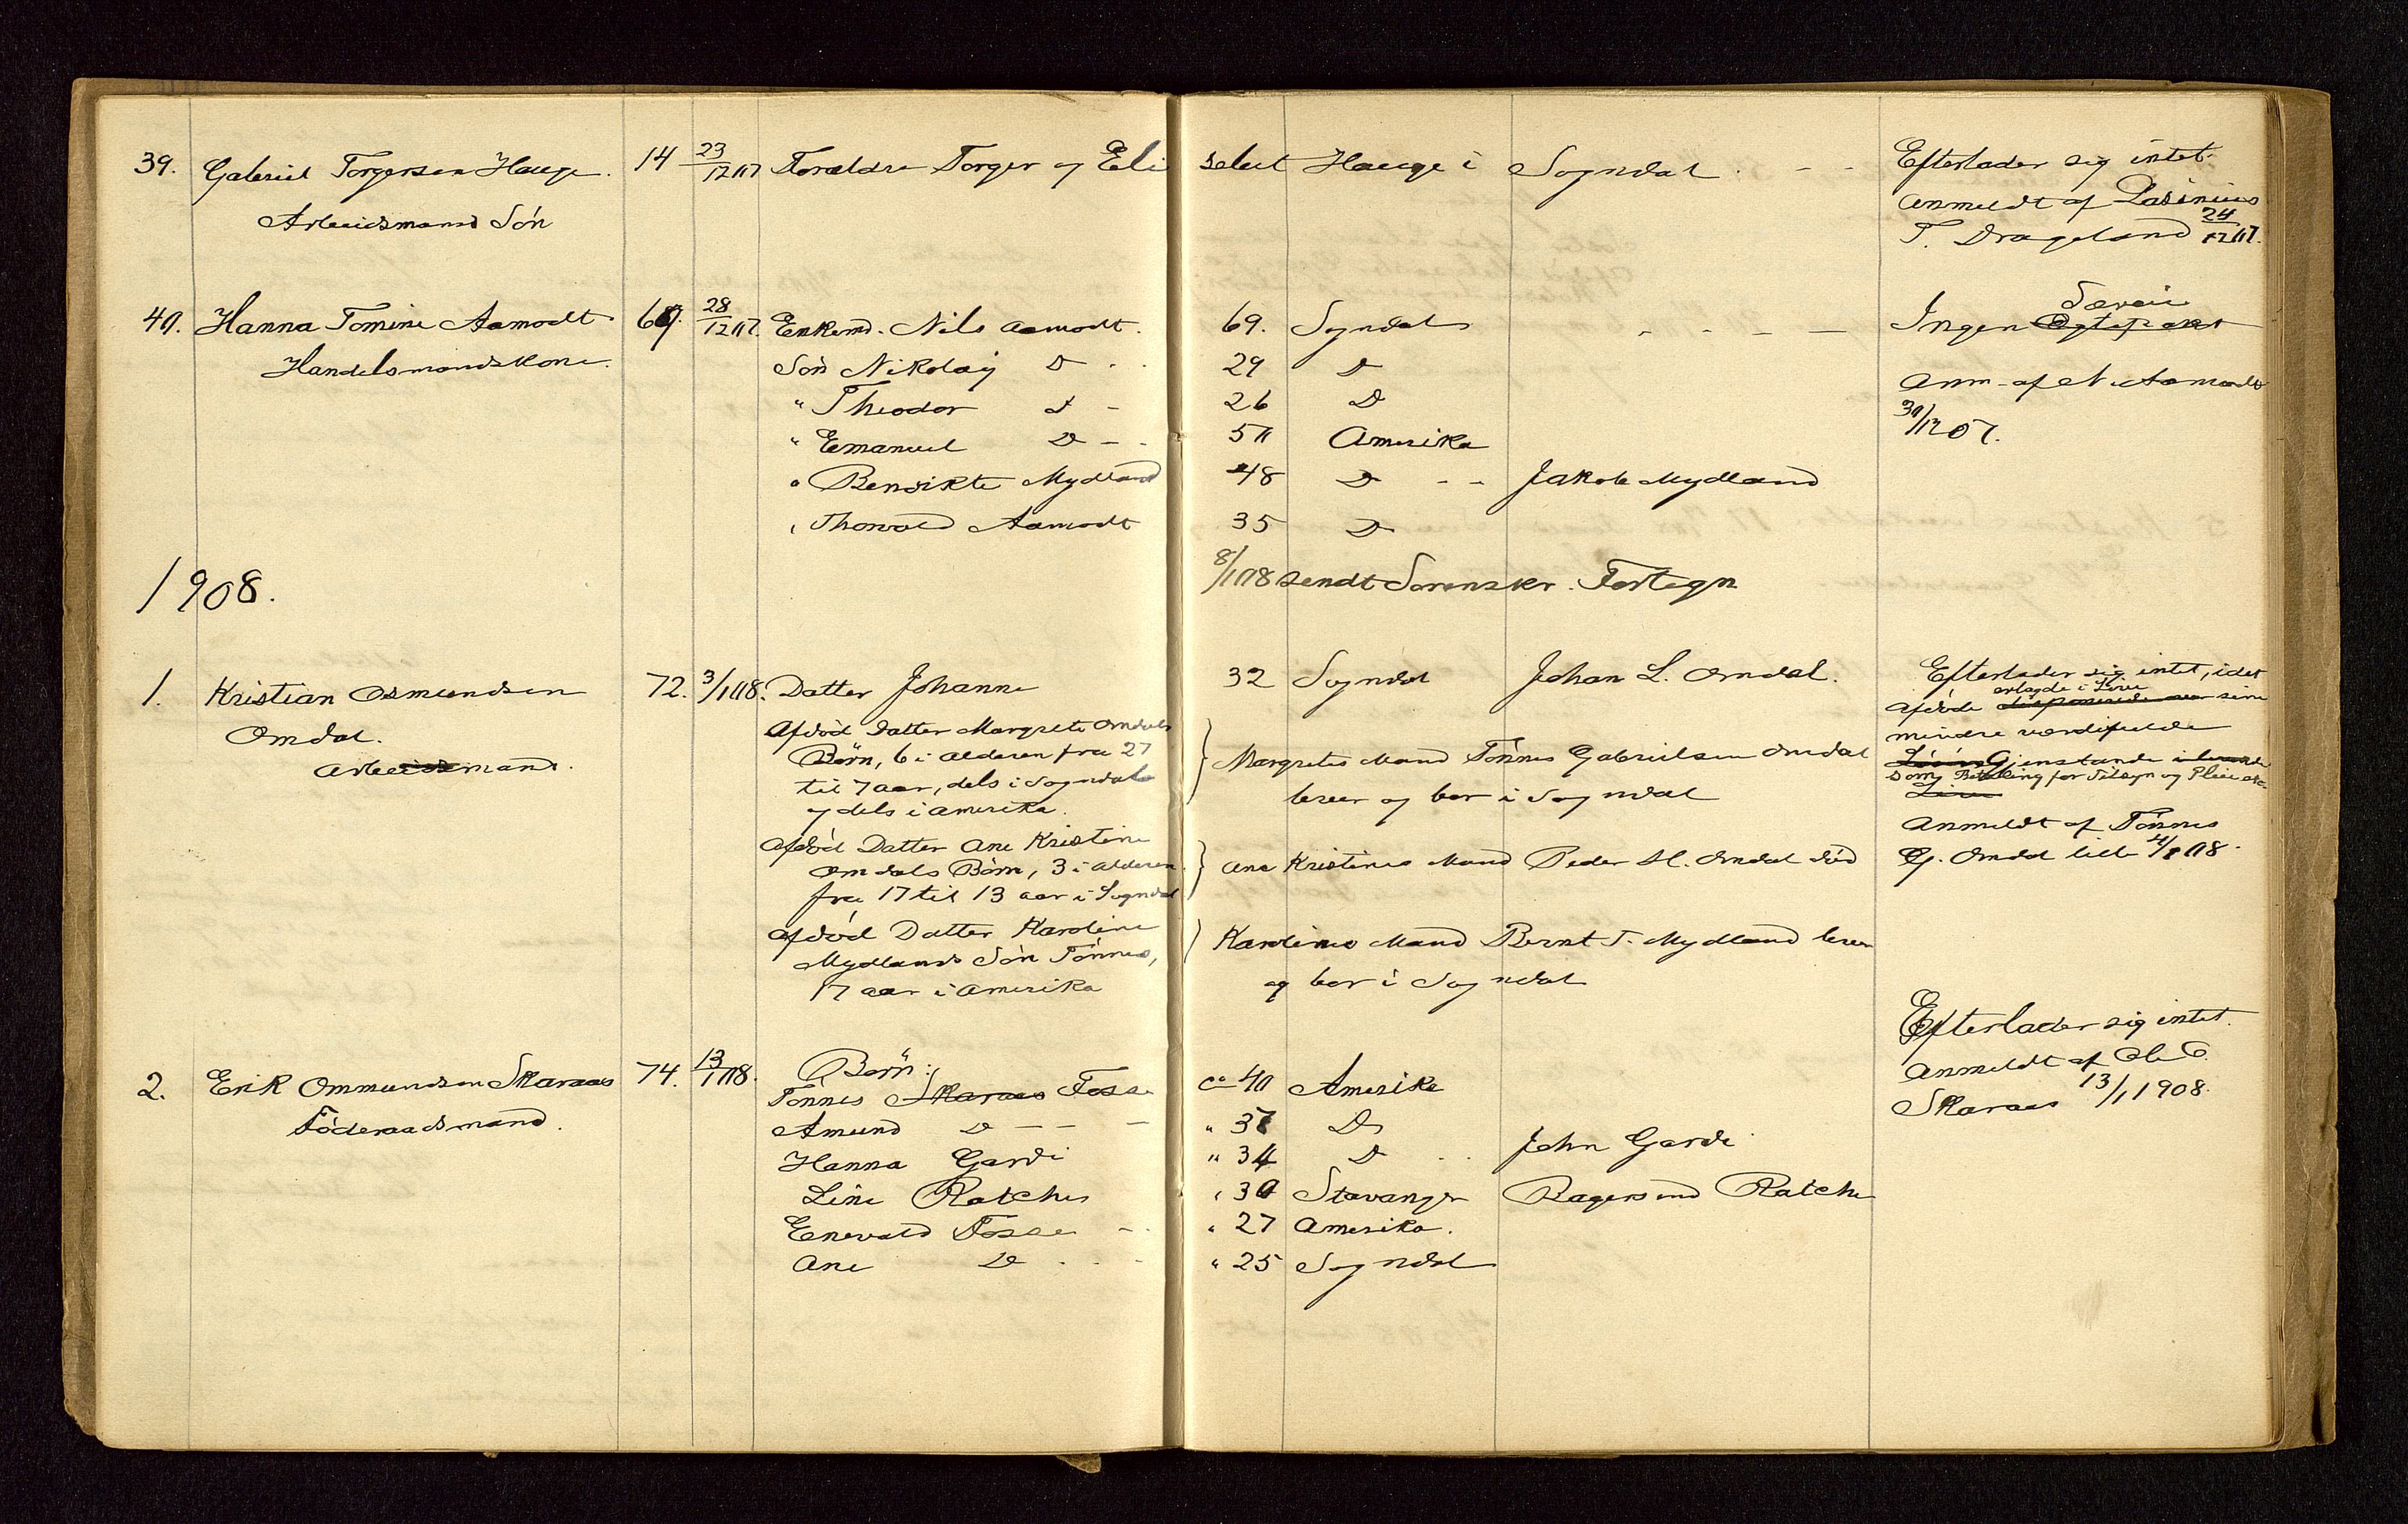 39. Gabriel Torgersen Hauge. 14 23/12 07 Forældre Torger og Eli selut Hauge i Sogndal - -
Arbeidsmand Søn
Efterlader sig intet.
Anmeldt af Rasmus
T. Drageland 24/12 07.
40. Hanna Tomine Aamodt 69. 28/12 07. Enkemd. Nils Aamodt. 69. Sogndal - - - -
Handelsmandskone.
Søn Nikolay D - - 29 D
" Theodor D - 26 D
" Emanuel D - - 50 Amerika
" Bendikte Mydland 48 D - - Jakob Mydland
" Thorvald Aamodt 35 D
Ingen Særeie
Anm. af N. Aamodt
30/12 07.
1908.
8/1 08 sendt Sorenskr. Fortegn
1. Kristian Osmundsen 72. 3/1 08. Datter Johanne 32 Sogndal Johan L. Omdal.
Omdal.
Arbeidsmand.
Afdød Datter Margrete Omdals
Børn, 6 i Alderen fra 27
til 7 aar, dels i Sogndal
og dels i Amerika.
Margretes Mand Tønnes Gabrielsen Omdal
lever og bor i Sogndal
Afdød Datter Ane Kristine
Omdals Børn, 3 i Alderen
fra 17 til 13 aar i Sogndal
Ane Kristines Mand Peder H. Omdal død
Afdød Datter Karoline
Mydlands Søn Tønnes,
17 aar i Amerika
Karolines Mand Bernt T. Mydland lever
og bor i Sogndal
Efterlader sig intet, idet
afdøde i Live sine
mindre værdifulde
Gjenstande
som Betaling for Tilsyn og Pleie
Anmeldt af Tønnes
G. Omdal 08.
2. Erik Ommundsen Skaraas 74. 13/1 08. Børn:
Føderaadsmand.
Tønnes Skaraas Fosse ca 40 Amerika
Amund D - - - " 37 D
Hanna Gardi " 34 D - - John Gardi
Line Ratche " 30 Stavanger Ratche
Enevald Fosse - - " 27 Amerika.
Ane D - - - " 25 Sogndal
Efterlader sig intet.
Anmeldt af Ole E.
Skaraas 13/1 1908.